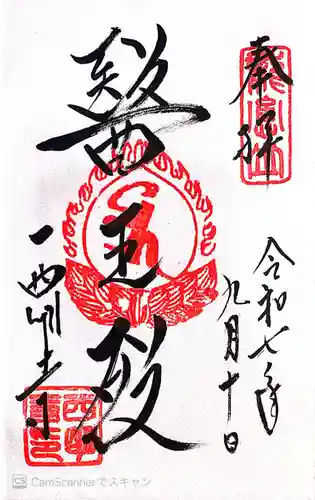 奉拝
令和七年
九月十日
醫王殿
西明寺
CS CamScannerでスキャン